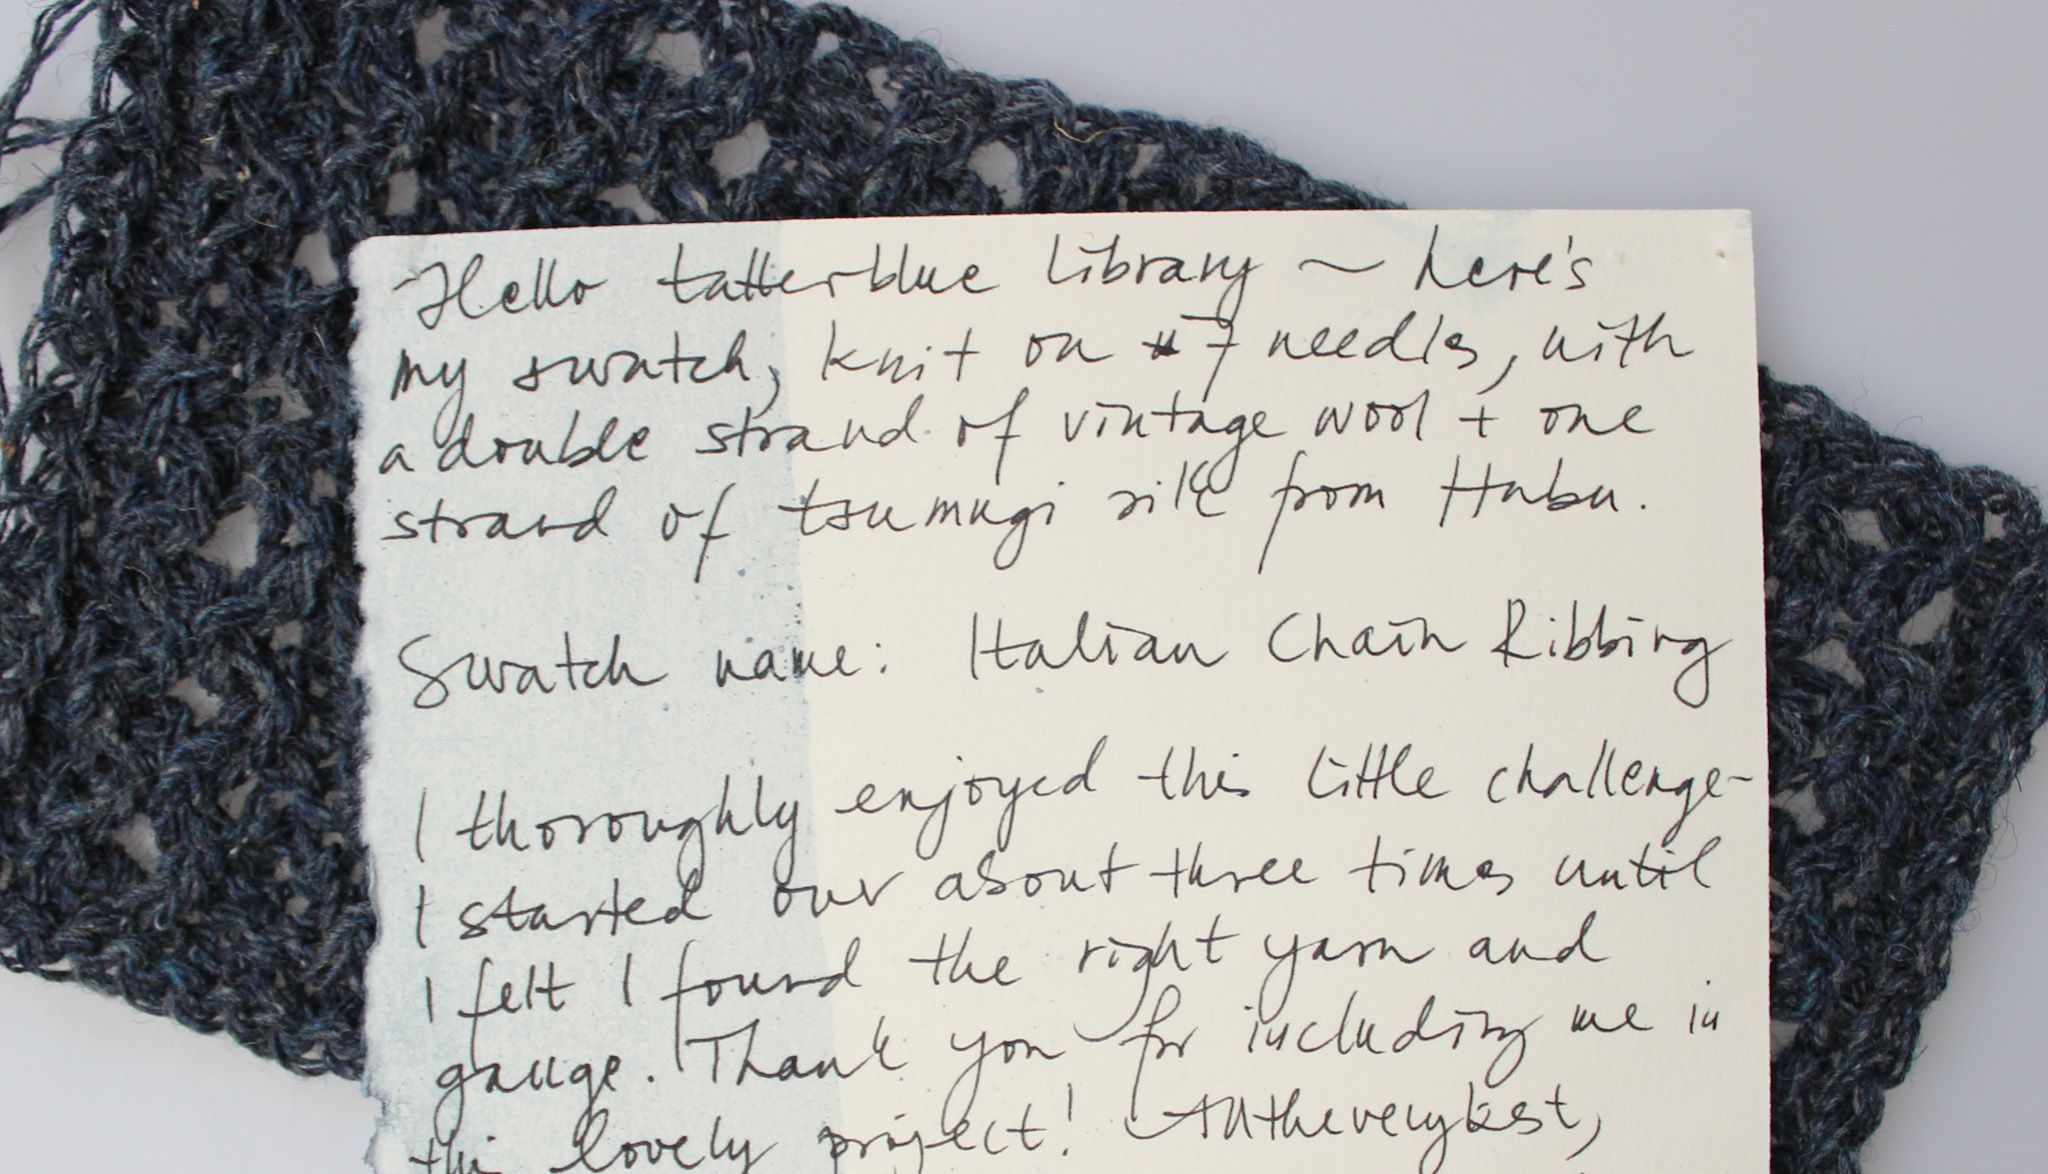 Hello tatterblue Library ~ here's
my swatch, knit on #7 needles, with
a double strand of vintage wool + one
strand of tsumugi silk from Habu.
Swatch name: Italian Chain Ribbing
I thoroughly enjoyed this little challenge-
I started over about three times until
I felt I found the right yarn and
gauge. Thank you for including me in
this lovely project! All the very best,